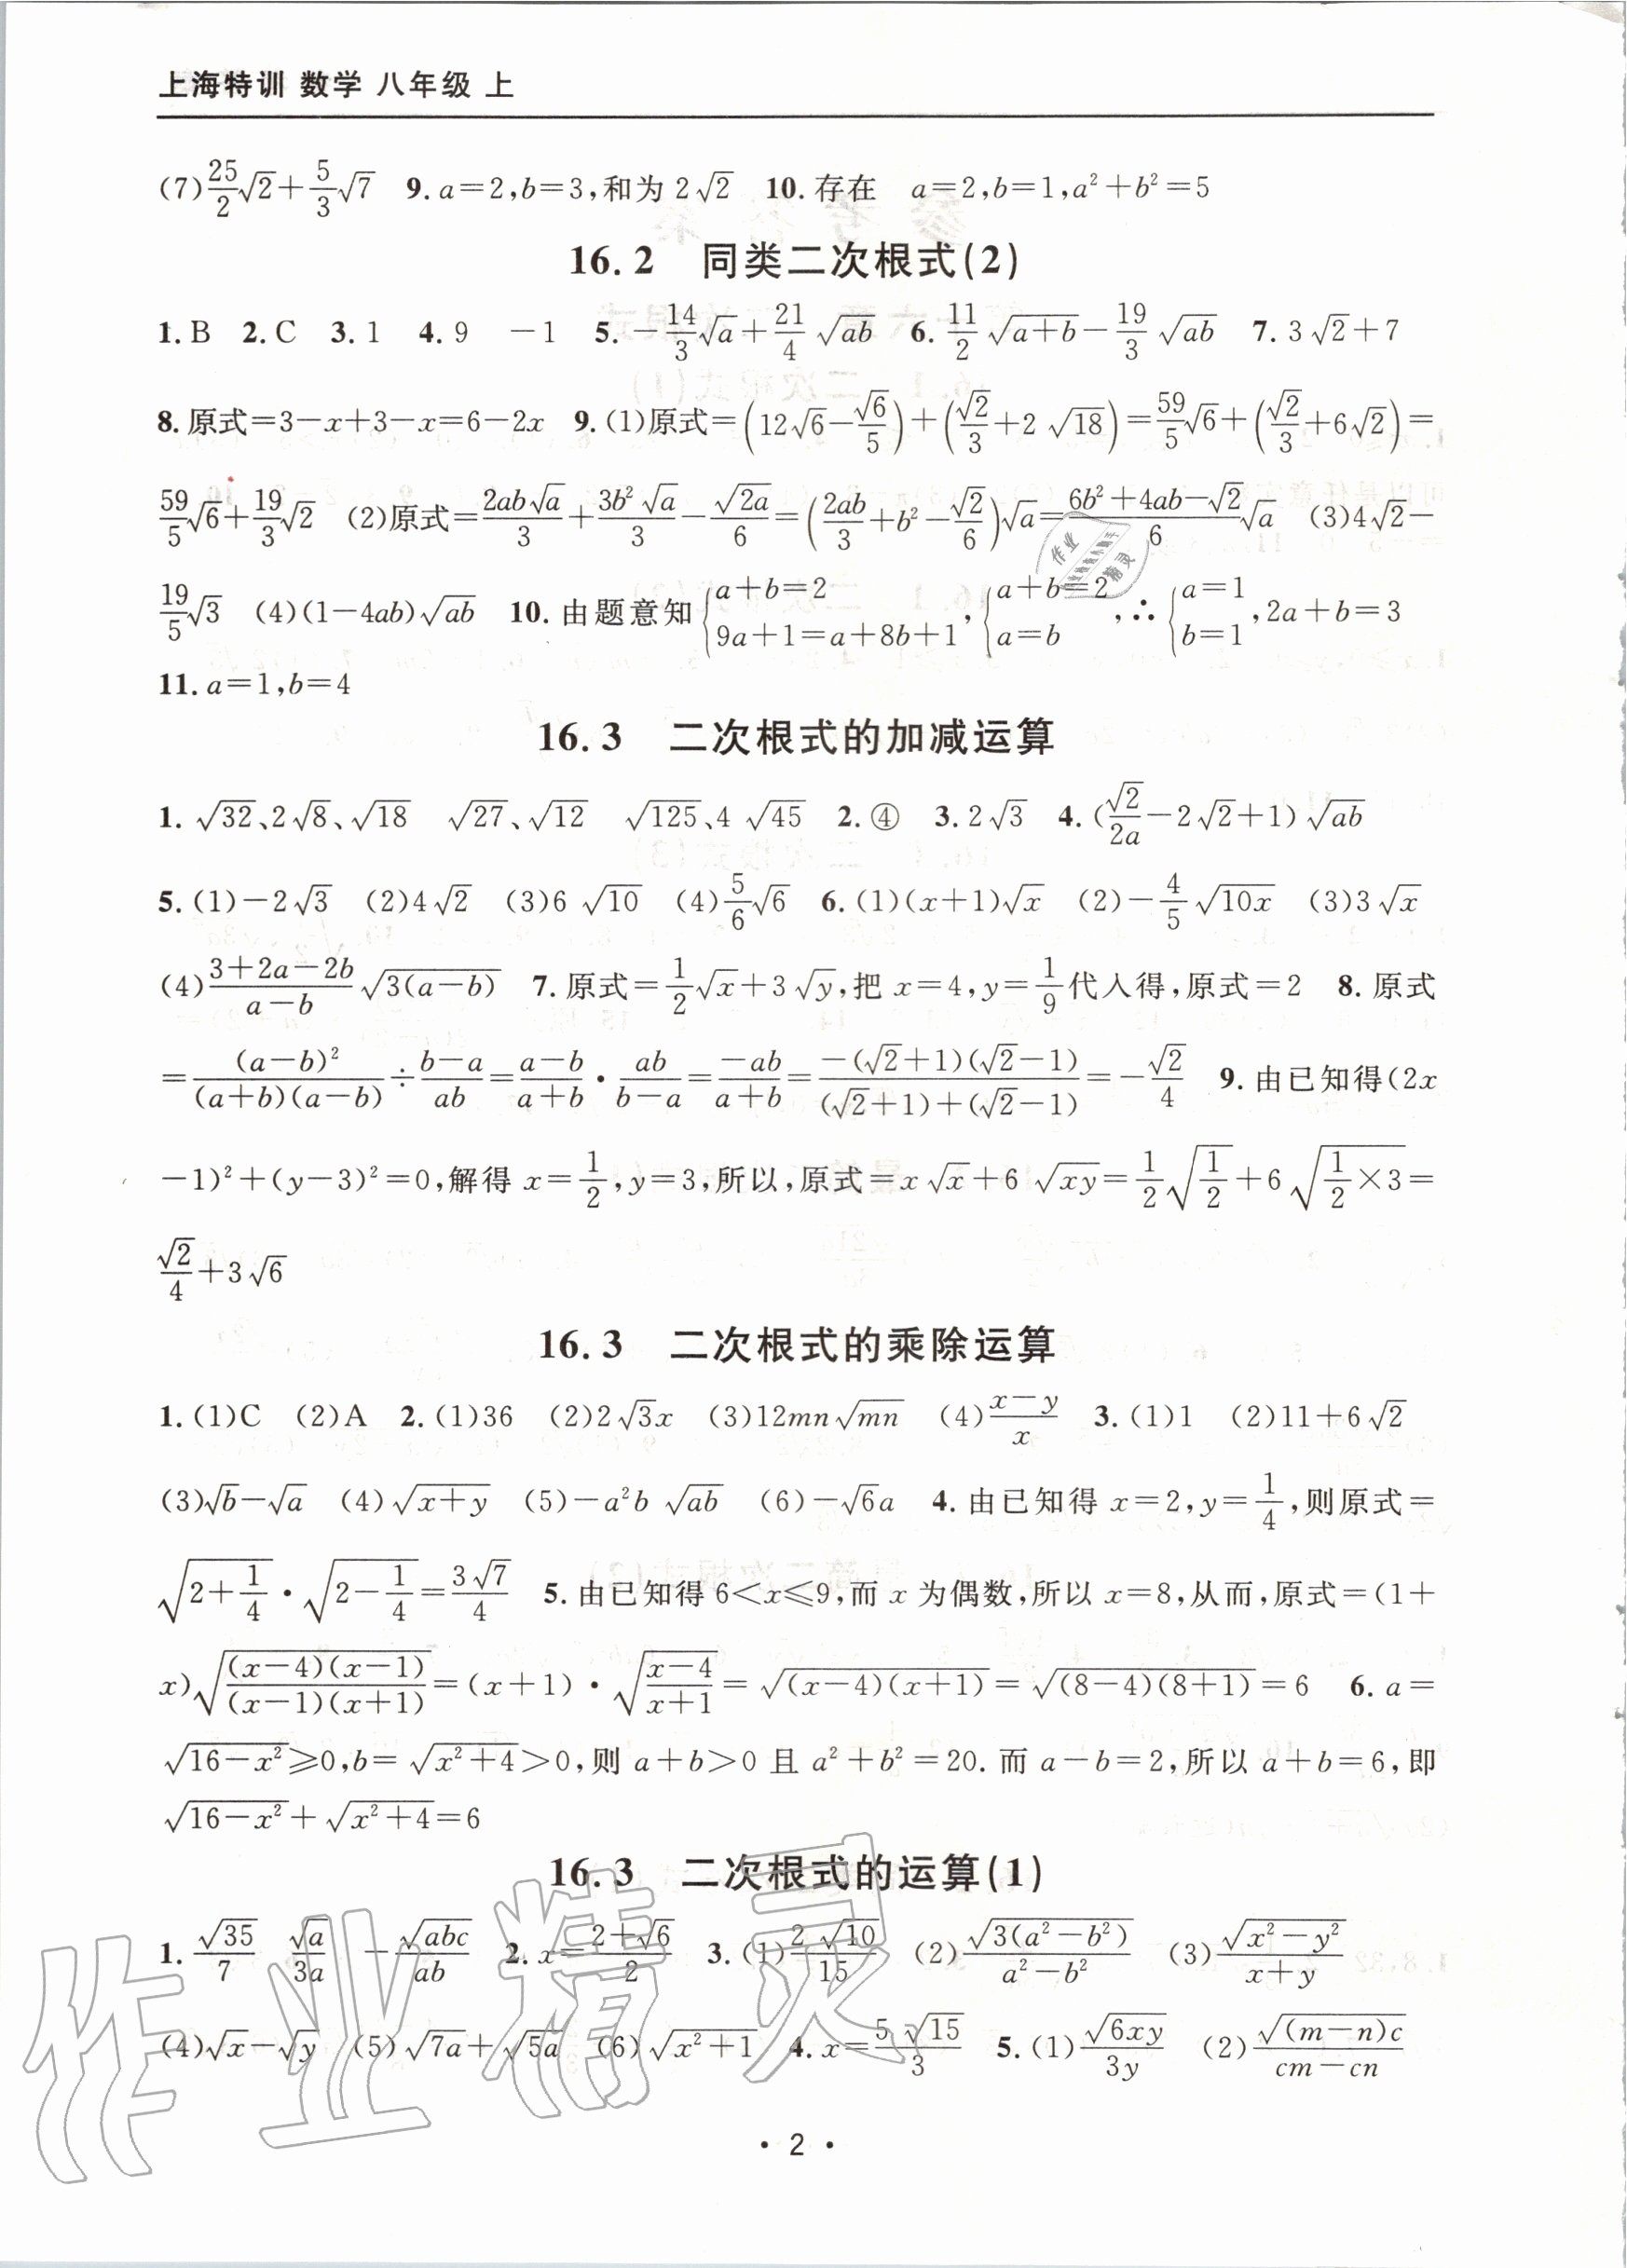 上海特训 数学 八年级 上
(7)$\frac{25}{2}\sqrt{2}+\frac{5}{3}\sqrt{7}$ 9. a=2,b=3,和为 $2\sqrt{2}$ 10. 存在 a=2,b=1,$a^2+b^2=5$
16.2 同类二次根式(2)
1. B 2. C 3. 1 4. 9 −1 5. $-\frac{14}{3}\sqrt{a}+\frac{21}{4}\sqrt{ab}$ 6. $\frac{11}{2}\sqrt{a+b}-\frac{19}{3}\sqrt{ab}$ 7. $3\sqrt{2}+7$
8. 原式=3−x+3−x=6−2x 9. (1)原式=$\left(12\sqrt{6}-\frac{\sqrt{6}}{5}\right)+\left(\frac{\sqrt{2}}{3}+2\sqrt{18}\right)=\frac{59}{5}\sqrt{6}+\left(\frac{\sqrt{2}}{3}+6\sqrt{2}\right)=$
$\frac{59}{5}\sqrt{6}+\frac{19}{3}\sqrt{2}$ (2)原式=$\frac{2ab\sqrt{a}}{3}+\frac{3b^2\sqrt{a}}{3}-\frac{\sqrt{2a}}{6}=\left(\frac{2ab}{3}+b^2-\frac{\sqrt{2}}{6}\right)\sqrt{a}=\frac{6b^2+4ab-\sqrt{2}}{6}\sqrt{a}$ (3)$4\sqrt{2}-$
$\frac{19}{5}\sqrt{3}$ (4)$(1-4ab)\sqrt{ab}$ 10. 由题意知$\begin{cases}a+b=2\\9a+1=a+8b+1\end{cases}$,$\begin{cases}a+b=2\\a=b\end{cases}$,∴$\begin{cases}a=1\\b=1\end{cases}$,2a+b=3
11. a=1,b=4
16.3 二次根式的加减运算
1. $\sqrt{32}$、$2\sqrt{8}$、$\sqrt{18}$ $\sqrt{27}$、$\sqrt{12}$ $\sqrt{125}$、$4\sqrt{45}$ 2. ④ 3. $2\sqrt{3}$ 4. $(\frac{\sqrt{2}}{2a}-2\sqrt{2}+1)\sqrt{ab}$
5. (1)$-2\sqrt{3}$ (2)$4\sqrt{2}$ (3)$6\sqrt{10}$ (4)$\frac{5}{6}\sqrt{6}$ 6. (1)$(x+1)\sqrt{x}$ (2)$-\frac{4}{5}\sqrt{10x}$ (3)$3\sqrt{x}$
(4)$\frac{3+2a-2b}{a-b}\sqrt{3(a-b)}$ 7. 原式=$\frac{1}{2}\sqrt{x}+3\sqrt{y}$,把 x=4,y=$\frac{1}{9}$代入得,原式=2 8. 原式
$=\frac{(a-b)^2}{(a+b)(a-b)}\div\frac{b-a}{ab}=\frac{a-b}{a+b}\cdot\frac{ab}{b-a}=\frac{-ab}{a+b}=\frac{-(\sqrt{2}+1)(\sqrt{2}-1)}{(\sqrt{2}+1)+(\sqrt{2}-1)}=-\frac{\sqrt{2}}{4}$ 9. 由已知得(2x
$-1)^2+(y-3)^2=0$,解得 $x=\frac{1}{2}$,y=3,所以,原式=$x\sqrt{x}+6\sqrt{xy}=\frac{1}{2}\sqrt{\frac{1}{2}}+6\sqrt{\frac{1}{2}\times3}=$
$\frac{\sqrt{2}}{4}+3\sqrt{6}$
16.3 二次根式的乘除运算
1. (1)C (2)A 2. (1)36 (2)$2\sqrt{3}x$ (3)$12mn\sqrt{mn}$ (4)$\frac{x-y}{x}$ 3. (1)1 (2)$11+6\sqrt{2}$
(3)$\sqrt{b}-\sqrt{a}$ (4)$\sqrt{x+y}$ (5)$-a^2b\sqrt{ab}$ (6)$-\sqrt{6}a$ 4. 由已知得 x=2,y=$\frac{1}{4}$,则原式=
$\sqrt{2+\frac{1}{4}}\cdot\sqrt{2-\frac{1}{4}}=\frac{3\sqrt{7}}{4}$ 5. 由已知得 6<x≤9,而 x 为偶数,所以 x=8,从而,原式=(1+
$x)\sqrt{\frac{(x-4)(x-1)}{(x-1)(x+1)}}=(x+1)\cdot\sqrt{\frac{x-4}{x+1}}=\sqrt{(x-4)(x+1)}=\sqrt{(8-4)(8+1)}=6$ 6. a=
$\sqrt{16-x^2}\geqslant0$,$b=\sqrt{x^2+4}>0$,则 a+b>0 且 $a^2+b^2=20$. 而 a−b=2,所以 a+b=6,即
$\sqrt{16-x^2}+\sqrt{x^2+4}=6$
16.3 二次根式的运算(1)
1. $\frac{\sqrt{35}}{7}$ $\frac{\sqrt{a}}{3a}$ $-\frac{\sqrt{abc}}{ab}$ 2. $x=\frac{2+\sqrt{6}}{2}$ 3. (1)$\frac{2\sqrt{10}}{15}$ (2)$\frac{\sqrt{3(a^2-b^2)}}{a^2-b^2}$ (3)$\frac{\sqrt{x^2-y^2}}{x+y}$
(4)$\sqrt{x}-\sqrt{y}$ (5)$\sqrt{7a}+\sqrt{5a}$ (6)$\sqrt{x^2+1}$ 4. $x=\frac{5\sqrt{15}}{3}$ 5. (1)$\frac{\sqrt{6xy}}{3y}$ (2)$\frac{\sqrt{(m-n)c}}{cm-cn}$
· 2 ·
作业精灵